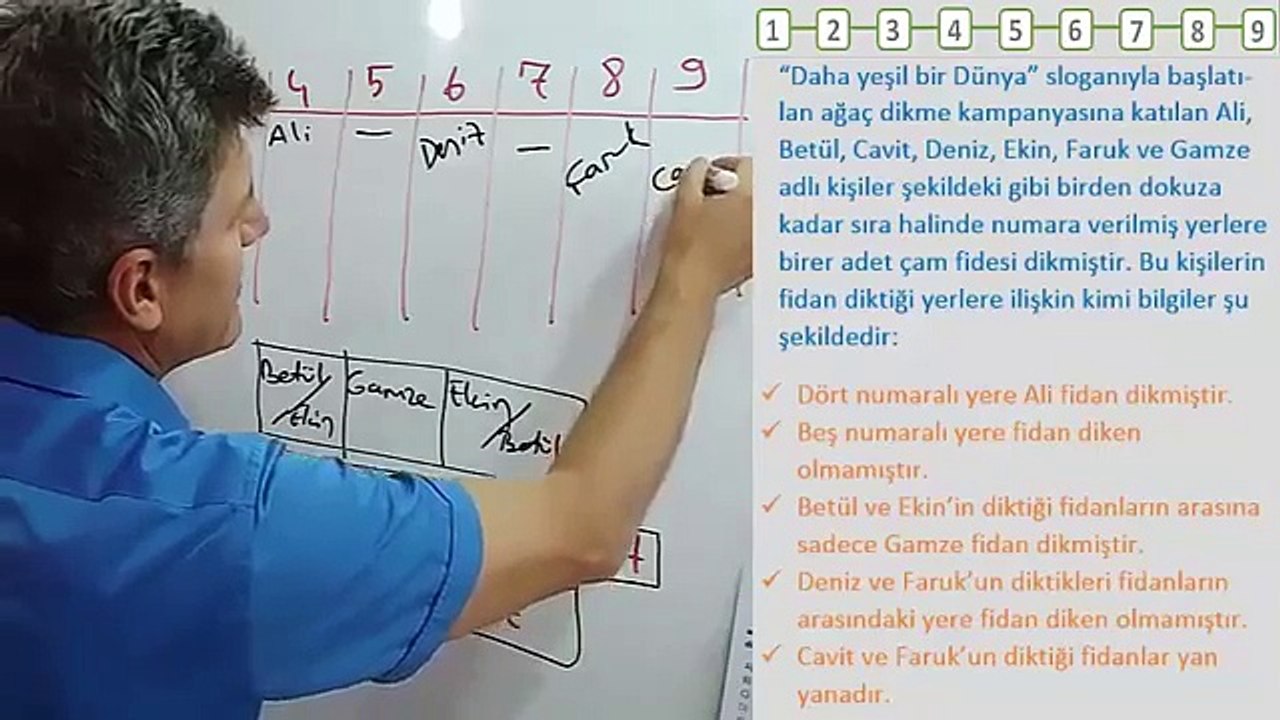 4 5 6 7 8 9
Ali — Deniz — Çaruk
Betül/Ekin Gamze Ekin/Betül
1 2 3 4 5 6 7 8 9
“Daha yeşil bir Dünya” sloganıyla başlatı-
lan ağaç dikme kampanyasına katılan Ali,
Betül, Cavit, Deniz, Ekin, Faruk ve Gamze
adlı kişiler şekildeki gibi birden dokuza
kadar sıra halinde numara verilmiş yerlere
birer adet çam fidesi dikmiştir. Bu kişilerin
fidan diktiği yerlere ilişkin kimi bilgiler şu
şekildedir:
✓ Dört numaralı yere Ali fidan dikmiştir.
✓ Beş numaralı yere fidan diken
olmamıştır.
✓ Betül ve Ekin’in diktiği fidanların arasına
sadece Gamze fidan dikmiştir.
✓ Deniz ve Faruk’un diktikleri fidanların
arasındaki yere fidan diken olmamıştır.
✓ Cavit ve Faruk’un diktiği fidanlar yan
yanadır.